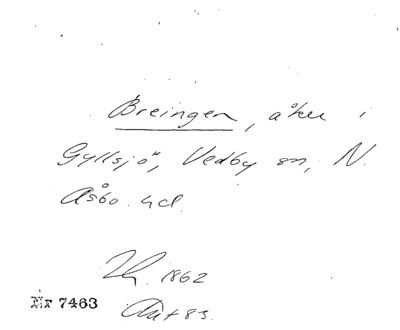 Breingen, åker i
Gyllsjö, Vedby sn, N.
Åsbo hd.
1862
Nr 7463
83.